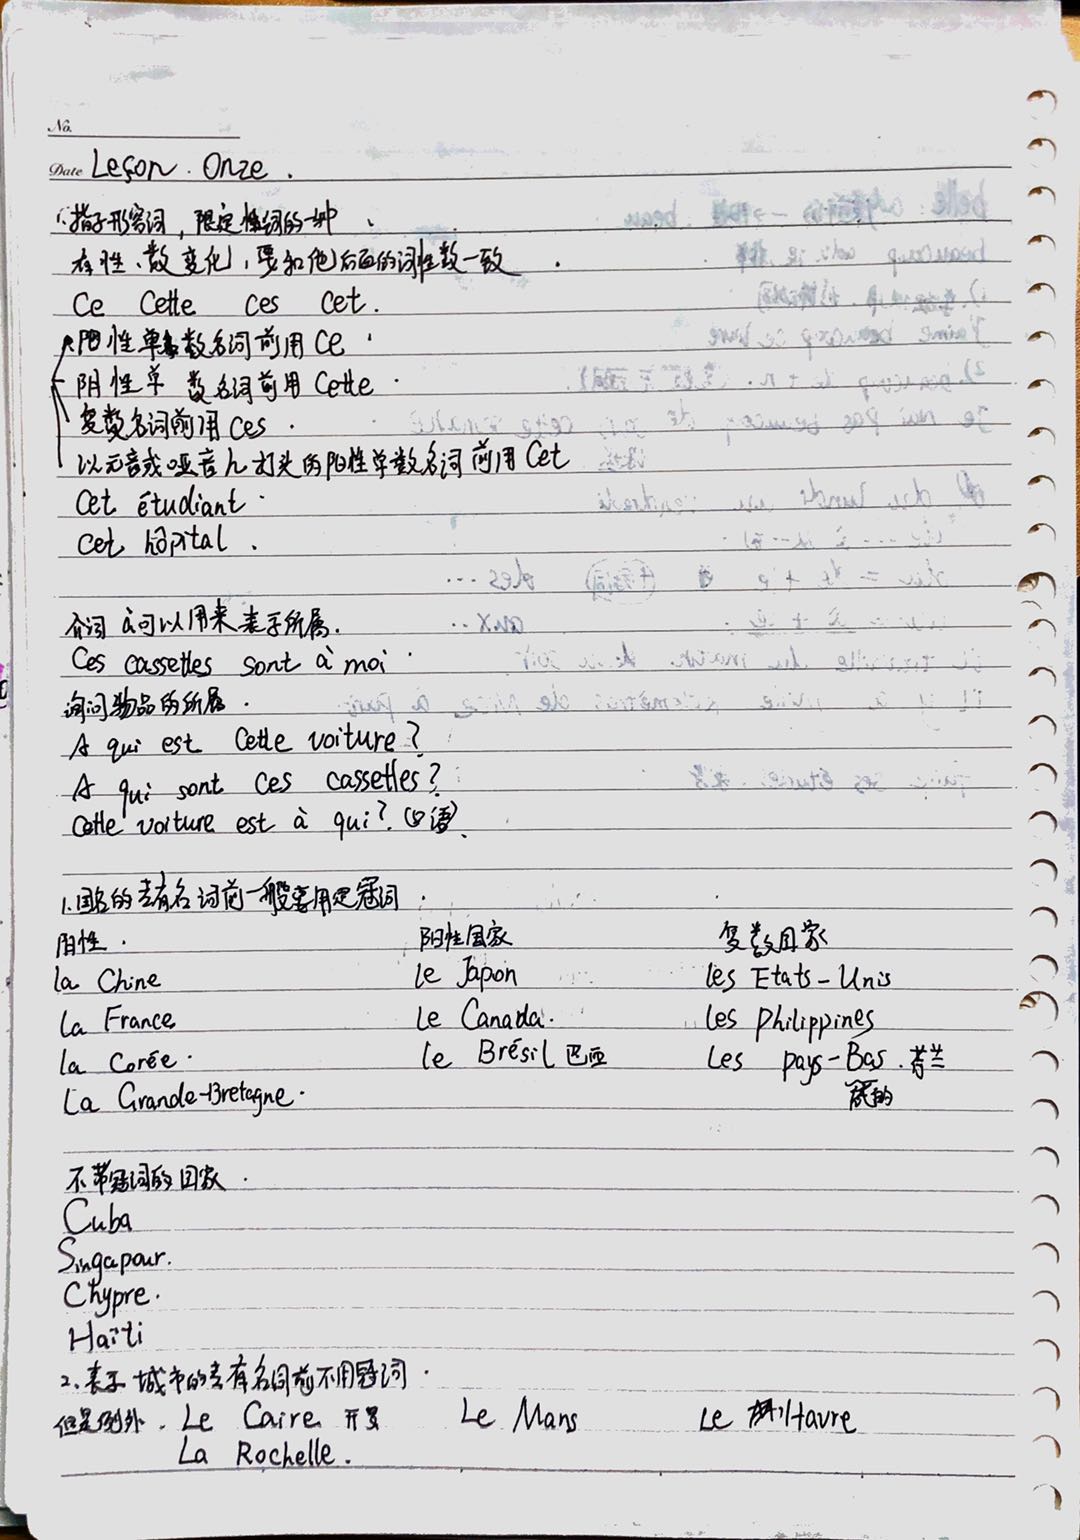 No.
Date Leçon. Onze.
1.指示形容词，限定性词的一种、
有性、数变化，要和他后面的词性数一致.
Ce Cette ces cet.
阳性单数名词前用Ce.
阴性单 数名词前用Cette.
复数名词前用Ces.
以元音或哑音h打头的阳性单数名词前用Cet
Cet étudiant.
Cet hôpital.
介词à可以用来表示所属.
Ces cassettes sont à moi.
询问物品的所属.
A qui est Cette voiture?
A qui sont Ces cassettes?
Cette voiture est à qui?.(口语).
1.国名的专有名词前一般要用定冠词.
阴性. 阳性国家 复数国家
la Chine le Japon les Etats-Unis
La France Le Canada. Les Philippines
la Corée. le Brésil 巴西 Les pays-Bas.荷兰
La Grande-Bretagne. 底的
不带冠词的国家.
Cuba
Singapour.
Chypre.
Haïti
2、表示城市的专有名词前不用冠词.
但是例外. Le Caire 开罗 Le Mans Le Havre
La Rochelle.